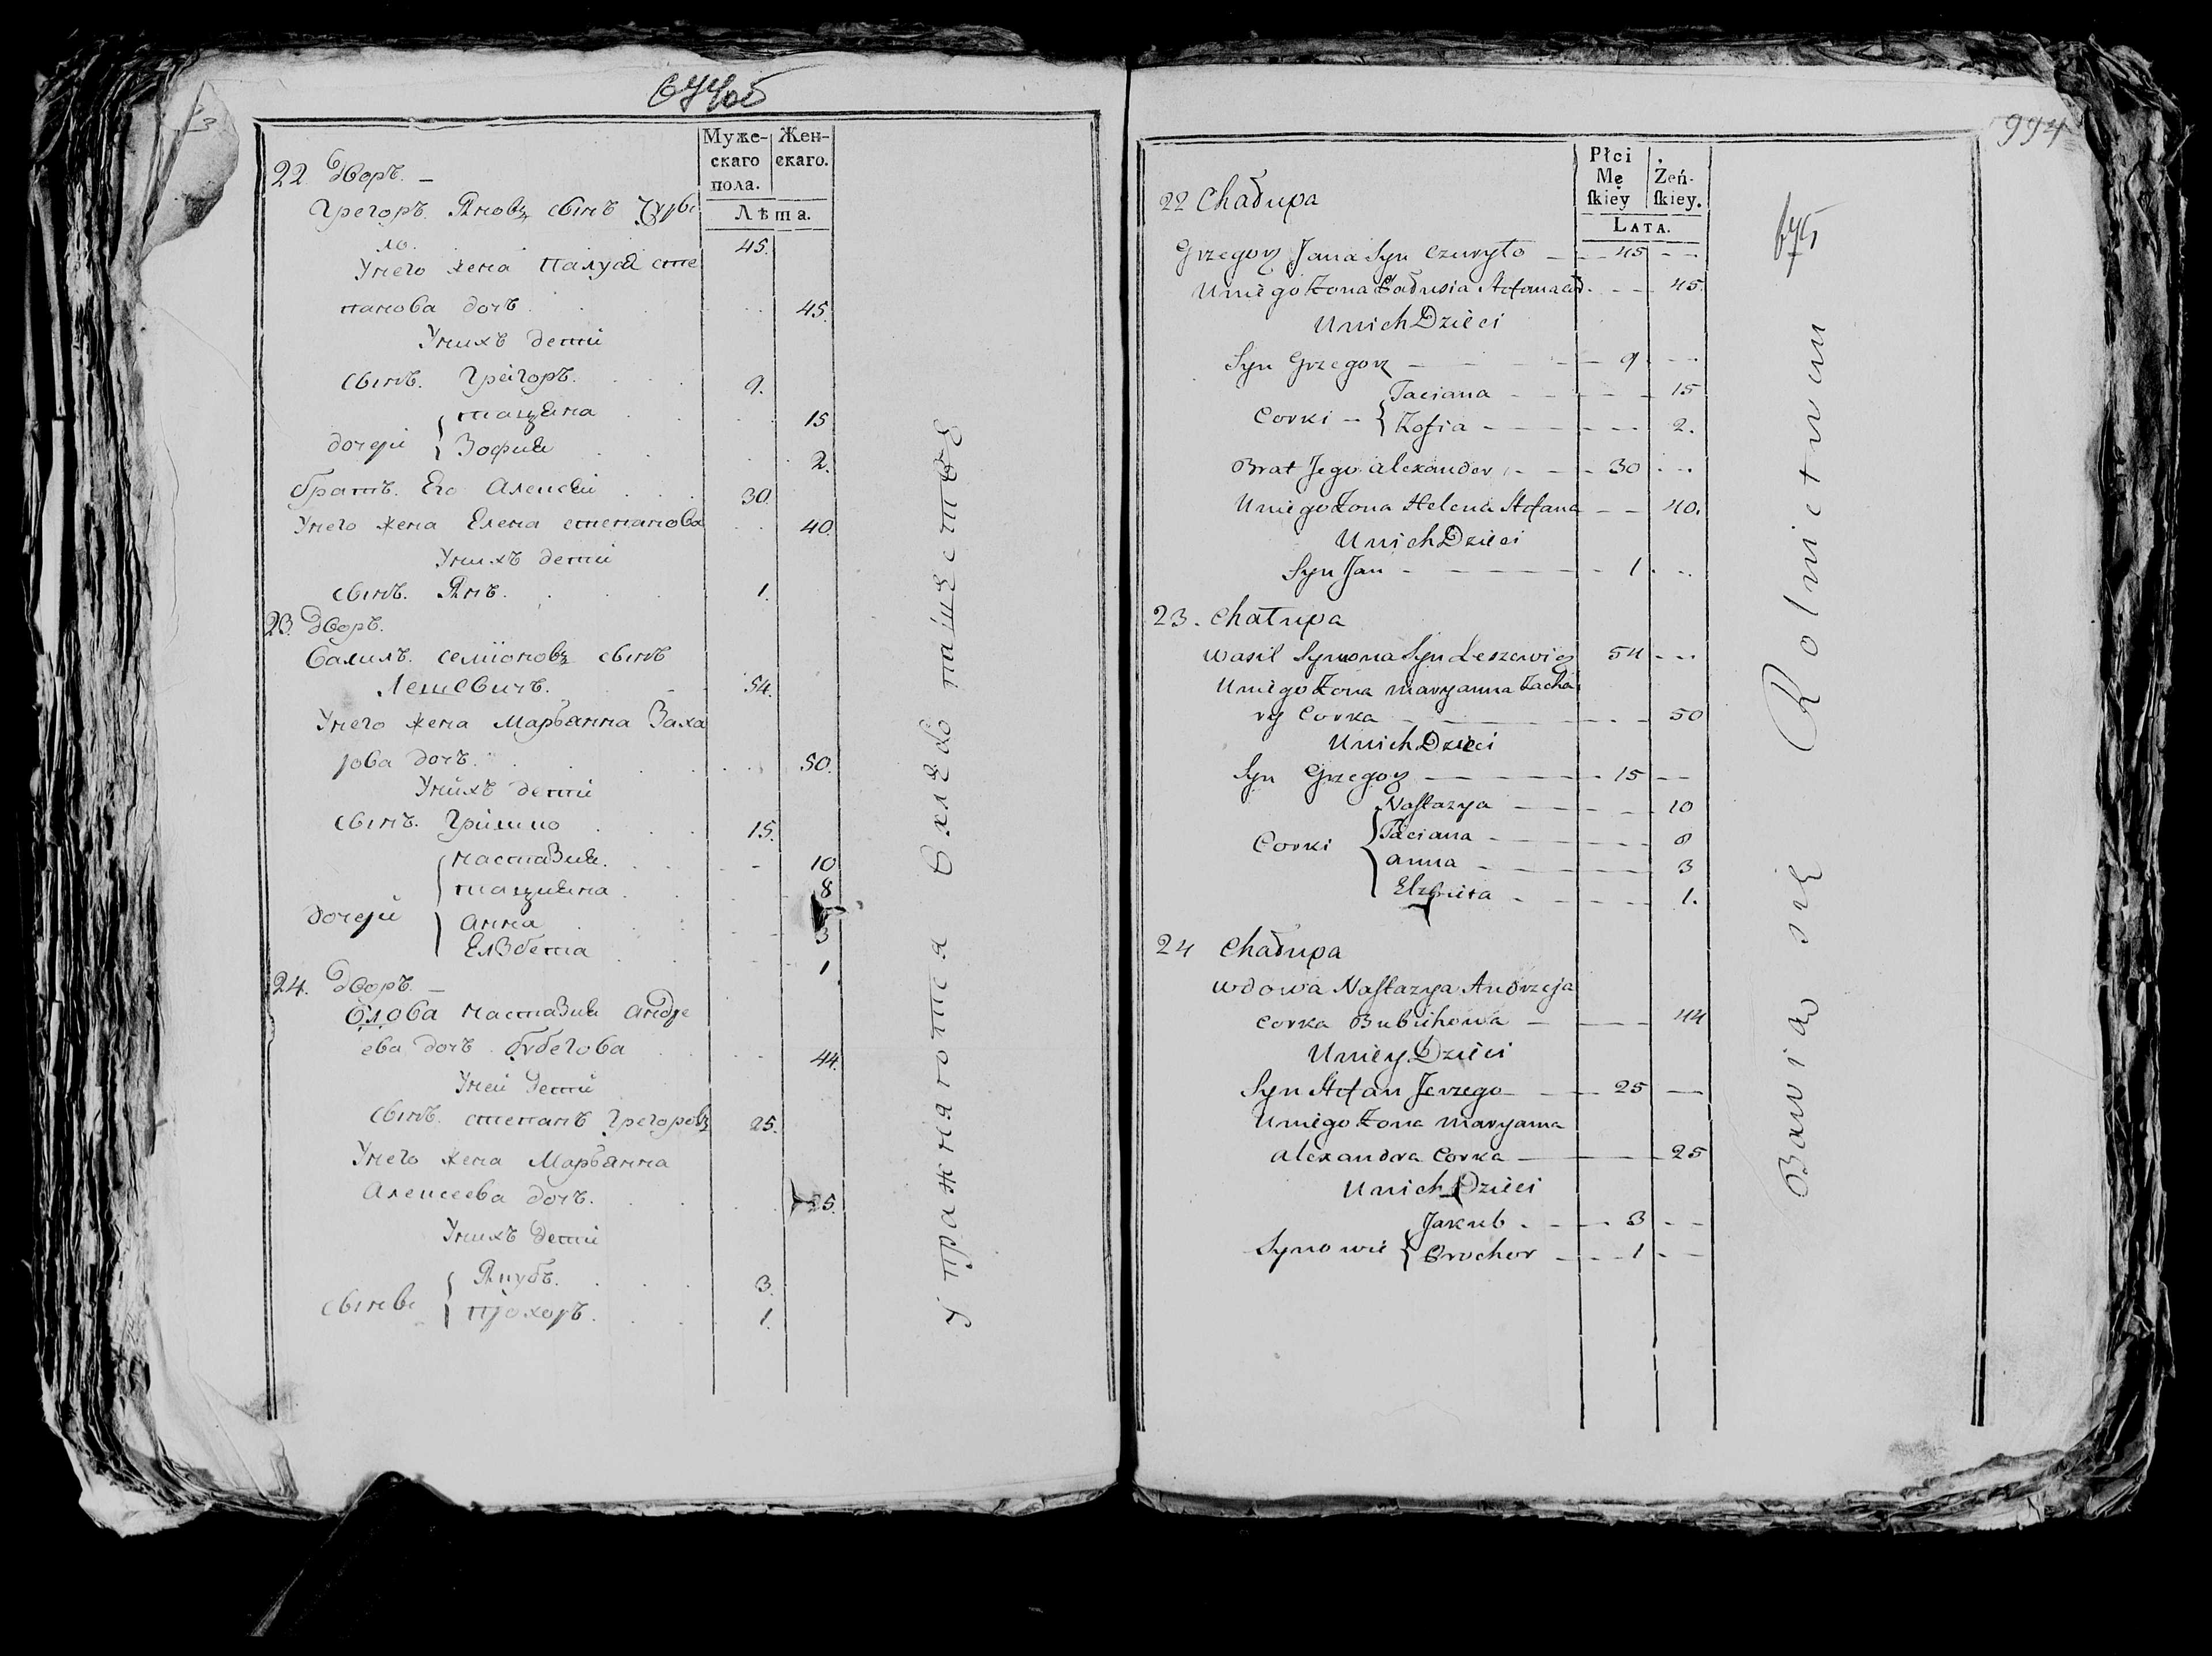 Муже-
скаго
пола.
Жен-
скаго.
Лѣта.
22 Дворъ. —
Грегоръ. Яновъ сынъ Чурьі
ло. 45.
Унего жена Палуся сте
панова дочь . . . 45.
Унихъ дети
сынъ. Грегоръ. . . . 9.
дочери { тацяна . . . 15
Зофия . . . 2.
братъ. Его Алексей . . . 30.
Унего жена Елена степанова . . 40.
Унихъ дети
сынъ. Янъ. . . . 1.
23. Дворъ.
Василъ. семионовъ сынъ
Лешевичъ. . . 54.
Унего жена Марьянна Заха
рова дочъ. . . . 50.
Унихъ дети
сынъ. Гришко . . . 15.
дочери { настазия. . . . 10
тацияна . . . 8
Анна . . . 3
Елзбета . . . 1
24. Дворъ. —
вдова настазия андре
ева дочъ . бубегова . . . 44.
Уней дети
сынъ. степанъ Грегоровъ 25.
Унего жена Марьянна
Алексеева дочъ. . . . 25.
Унихъ дети
сынове { Якубъ. . . . 3.
Прохоръ. . . . 1.
Упражняются вхлебопашестве
994
Płci
Mę
skiey
Żeń-
skiey.
LATA.
22 Chałupa
Grzegorz Jana Syn Czuryło — 45 — —
Uniego Żona Pałusia Stefana cór. — — 45.
Unich Dzieci
Syn Grzegorz — — — 9 — —
Corki — { Taciana — — — 15
Zofia — — — 2.
Brat Jego Alexander — — 30 — —
Uniego Żona Helena Stefana — — 40.
Unich Dzieci
Syn Jan — — — 1 — —
23. Chałupa
Wasil Symona Syn Leszewicz 54 — —
Uniego Żona Maryanna Zacha
ry Corka — — — 50
Unich Dzieci
Syn Grzegorz — — — 15 — —
Corki { Nastazya — — — 10
Taciana — — — 8
Anna — — — 3
Elzbieta — — — 1.
24 Chałupa
Wdowa Nastazya Andrzeja
Corka Bubichowa — — 44
Uniey Dzieci
Syn Stefan Jerzego — — 25 —
Uniego Żona Maryanna
Alexandra Corka — — 25
Unich Dzieci
Synowie { Jakub — — 3 — —
Prochor — — 1 — —
Bawią się Rolnictwem